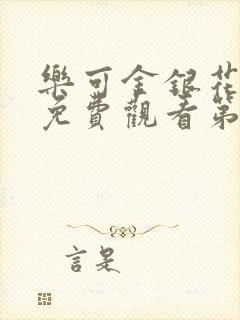 樂可金銀花
免費觀看第
言是